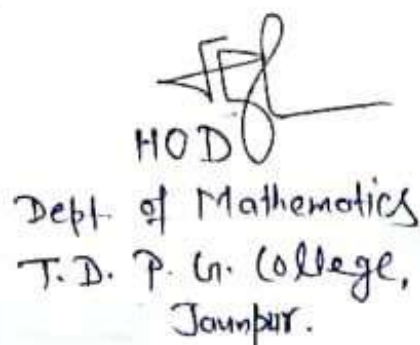 HOD
Dept. of Mathematics
T.D. P. G. College,
Jaunpur.